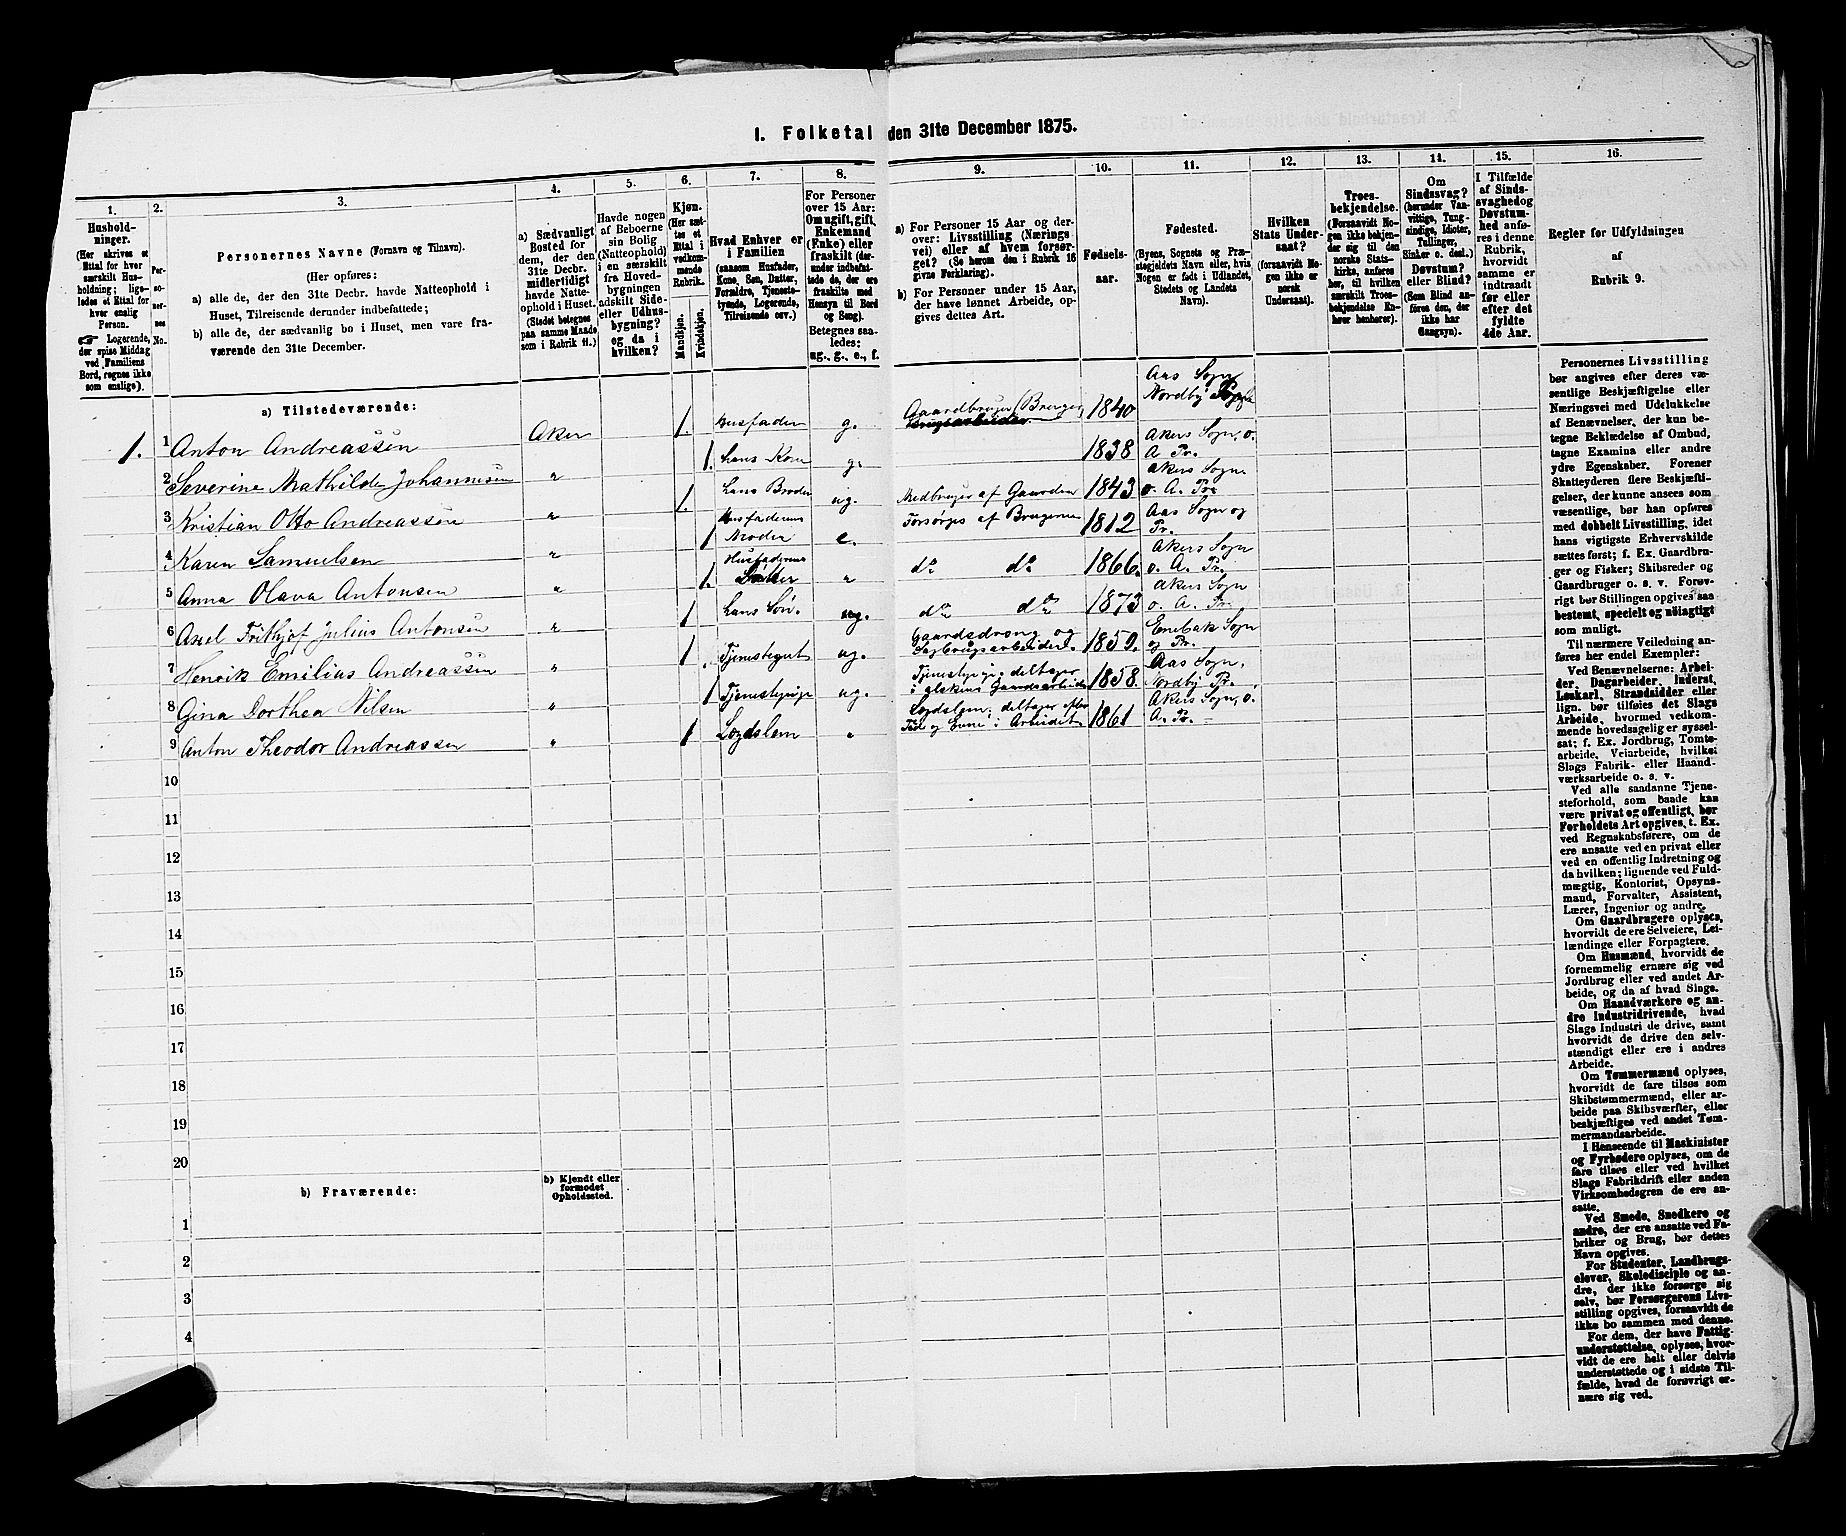 I. Folketal den 31te December 1875.
1.
Hushold-
ninger.
(Her skrives et
Ettal for hver
særskilt Hus-
holdning; lige-
ledes et Ettal for
hver enslig
Person.
☛ Logerende,
der spise Middag
ved Familiens
Bord, regnes ikke
som enslige).
2.
Per-
so-
ner-
nes
No.
3.
Personernes Navne (Fornavn og Tilnavn).
(Her opføres:
a) alle de, der den 31te Decbr. havde Natteophold i
Huset, Tilreisende derunder indbefattede;
b) alle de, der sædvanlig bo i Huset, men vare fra-
værende den 31te December.
4.
a) Sædvanligt
Bosted for
dem, der den
31te Decbr.
midlertidigt
havde Natte-
ophold i Huset.
(Stedet betegnes
paa samme Maade
som i Rubrik 11.)
5.
Havde nogen
af Beboerne
sin Bolig
(Natteophold)
i en særskilt
fra Hoved-
bygningen
adskilt Side-
eller Udhus-
bygning?
og da i
hvilken?
6.
Kjøn.
(Her sæt-
tes et
Ettal i
vedkom-
mende
Rubrik.
Mandkjøn.
Kvindekjøn.
7.
Hvad Enhver er
i Familien
(saasom Husfader,
Kone, Søn, Datter,
Forældre, Tjeneste-
tyende, Logerende,
Tilreisende osv.)
8.
For Personer
over 15 Aar:
Om ugift, gift,
Enkemand
(Enke) eller
fraskilt (der-
under indbefat-
tede de, der ere
fraskilte med
Hensyn til Bord
og Seng).
Betegnes saa-
ledes:
ug., g., e., f.
9.
a) For Personer 15 Aar og der-
over: Livsstilling (Nærings-
vei) eller af hvem forsør-
get? (Se herom den i Rubrik 16
givne Forklaring).
b) For Personer under 15 Aar,
der have lønnet Arbeide, op-
gives dettes Art.
10.
Fødsels-
aar.
11.
Fødested.
(Byens, Sognets og Præ-
stegjeldets Navn eller, hvis
Nogen er født i Udlandet,
Stedets og Landets
Navn).
12.
Hvilken
Stats Under-
saat?
(forsaavidt No-
gen ikke er
norsk
Undersaat).
13.
Troes-
bekjendelse.
(Forsaavidt No-
gen ikke bekjen-
der sig til den
norske Stats-
kirke, anføres
her, til hvilken
særskilt Troes-
bekjendelse En-
hver henhører).
14.
Om
Sindssvag?
(herunder Van-
vittige, Tung-
sindige, Idioter,
Tullinger,
Sinker o. desl.)
Døvstum?
eller Blind?
(Som Blind an-
føres den, der
ikke har
Gangsyn).
15.
I Tilfælde
af Sinds-
svaghed og
Døvstum-
hed anfø-
res i denne
Rubrik,
hvorvidt
samme er
indtraadt
før eller
efter det
fyldte
4de Aar.
16.
Regler for Udfyldningen
af
Rubrik 9.
a) Tilstedeværende:
1. 1 Anton Andreassen Aker 1. Husfader g. Gaardbruger (Bruger) 1840 Aas Sogn Nordby
2 Severine Mathilde Johannesen " 1. hans Kone g. 1838 Akers Sogn. o. A. Pr.
3 Kristian Otto Andreassen " 1. hans Broder ug. Medbruger af Gaarden 1843 Akers Sogn o. A. Pr.
4 Karen Samuelsen " 1 Husfaderens Moder e. Forsørges af Brugerne 1812 Aas Sogn og Pr.
5 Anna Olava Antonsen " 1. Husfaderens Datter " do do 1866. Akers Sogn o. A. Pr.
6 Axel Frithjof Julius Antonsen " 1 hans Søn. do do 1873 Akers Sogn o. A. Pr.
7 Henrik Emilius Andreassen " 1 Tjenestegut ug. Gaardsdreng og Sagbrugsarbeider. 1859. Enebak Sogn og Pr.
8 Gina Dorthea Nilsen " 1 Tjenestepige ug. Tjenestepige; deltager i Gaardsarbeide 1858. Aas Sogn, Nordby Pr.
9 Anton Theodor Andreassen " 1 Lægdslem " Lægdslem, deltager efter Tid og Evne i Arbeidet 1861 Akers Sogn, o. A. Pr.
10
11
12
13
14
15
16
17
18
19
20
b) Fraværende:
b) Kjendt eller
formodet
Opholdssted.
1
2
3
4
Personernes Livsstilling
bør angives efter deres væ-
sentlige Beskjæftigelse eller
Næringsvei med Udelukkelse
af Benævnelser, der kun be-
tegne Beklædelse af Ombud,
tagne Examina eller andre
ydre Egenskaber. Forener
Skatteyderen flere Beskjæfti-
gelser, der kunne ansees som
væsentlige, bør han opføres
med dobbelt Livsstilling, idet
hans vigtigste Erhvervskilde
sættes først; f. Ex. Gaardbru-
ger og Fisker; Skibsreder og
Gaardbruger o. s. v. Forøv-
rigt bør Stillingen opgives saa
bestemt, specielt og nöiagtigt
som muligt.
Til nærmere Veiledning an-
føres her endel Exempler:
Ved Benævnelserne: Arbei-
der, Dagarbeider, Inderst,
Løskarl, Strandsidder eller
lign. bør tilføies det Slags
Arbeide, hvormed vedkom-
mende hovedsagelig er syssel-
sat; f. Ex. Jordbrug, Tomte-
arbeide, Veiarbeide, hvilket
Slags Fabrik- eller Haand-
værksarbeide o. s. v.
Ved alle saadanne Tjene-
steforhold, som baade kan
være privat og offentligt, bør
Forholdets Art opgives, t. Ex.
ved Regnskabsførere, om de
ere ansatte ved en privat eller
ved en offentlig Indretning og
da hvilken; lignende ved Fuld-
mægtig, Kontorist, Opsyns-
mand, Forvalter, Assistent,
Lærer, Ingeniør og andre.
Om Gaardbrugere oplyses,
hvorvidt de ere Selveiere, Lei-
lændinge eller Forpagtere.
Om Husmænd, hvorvidt de
fornemmelig ernære sig ved
Jordbrug eller ved andet Ar-
beide, og da af hvad Slags.
Om Haandværkere og an-
dre Industridrivende, hvad
Slags Industri de drive, samt
hvorvidt de drive den selv-
stændigt eller ere i andres
Arbeide.
Om Tømmermænd oplyses,
hvorvidt de fare tilsøs som
Skibstømmermænd, eller ar-
beide paa Skibsværfter, eller
beskjæftiges ved andet Tøm-
mermandsarbeide.
I Henseende til Maskinister
og Fyrbødere oplyses, om de
fare tilsøs eller ved hvilket
Slags Fabrikdrift eller anden
Virksomhedsgren de ere an-
satte.
Ved Smede, Snedkere og
andre, der ere ansatte ved Fa-
briker og Brug, bør dettes
Navn opgives.
For Studenter, Landbrugs-
elever, Skoledisciple og an-
dre, der ikke forsørge sig
selv, bør Forsørgerens Livs-
stilling opgives, forsaavidt de
ikke bo sammen med denne.
For dem, der have Fattig-
understøttelse, oplyses, hvor-
vidt de ere helt eller delvis
understøttede og i sidste Til-
fælde, hvad de forøvrigt er-
nære sig ved.